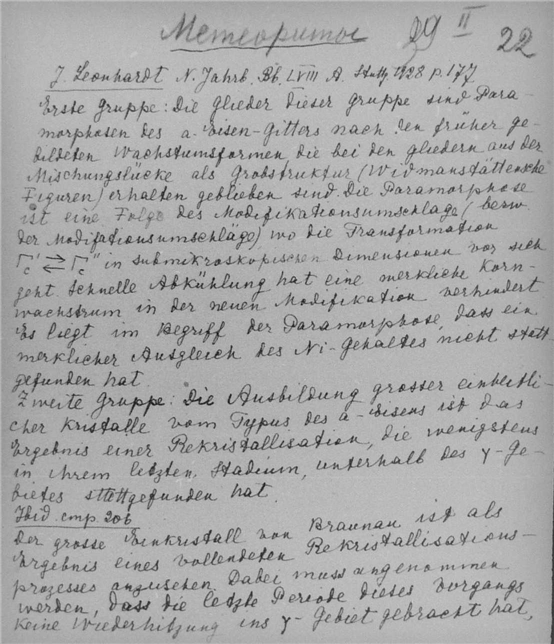 Метеориты 29 II 22
J. Leonhardt N. Jahrb. Bb. LVIII A. Stuttg. 1928 p. 177
Erste Gruppe: Die Glieder dieser Gruppe sind Para-
morphosen des α-Eisen-Gitters nach den früher ge-
bildeten Wachstumsformen, die bei den Gliedern aus der
Mischungslücke als Grobstruktur (Widmanstättensche
Figuren) erhalten geblieben sind. Die Paramorphose
ist eine Folge des Modifikationsumschlage (bezw.
der Modifationsumschläge), wo die Transformation
Γc' ⇄ Γc'' in submikroskopischen Dimensionen vor sich
geht. Schnelle Abkühlung hat eine merkliche Korn-
wachstrum in der neuen Modifikation verhindert
Es liegt im Begriff der Paramorphose, dass ein
merklicher Ausgleich des Ni-Gehaltes nicht statt-
gefunden hat.
Zweite Gruppe: Die Ausbildung grosser einheitli-
cher Kristalle vom Typus des α-Eisens ist das
Ergebnis einer Rekristallisation, die wenigstens
in ihrem letzten Stadium, unterhalb des γ-Ge-
bietes stattgefunden hat.
Ibid. стр. 206
Der grosse Einkristall von Braunau ist als
Ergebnis eines vollendeten Rekristallisations-
prozesses anzusehen. Dabei muss angenommen
werden, dass die letzte Periode dieses Vorgangs
keine Wiederhitzung ins γ-Gebiet gebracht hat,